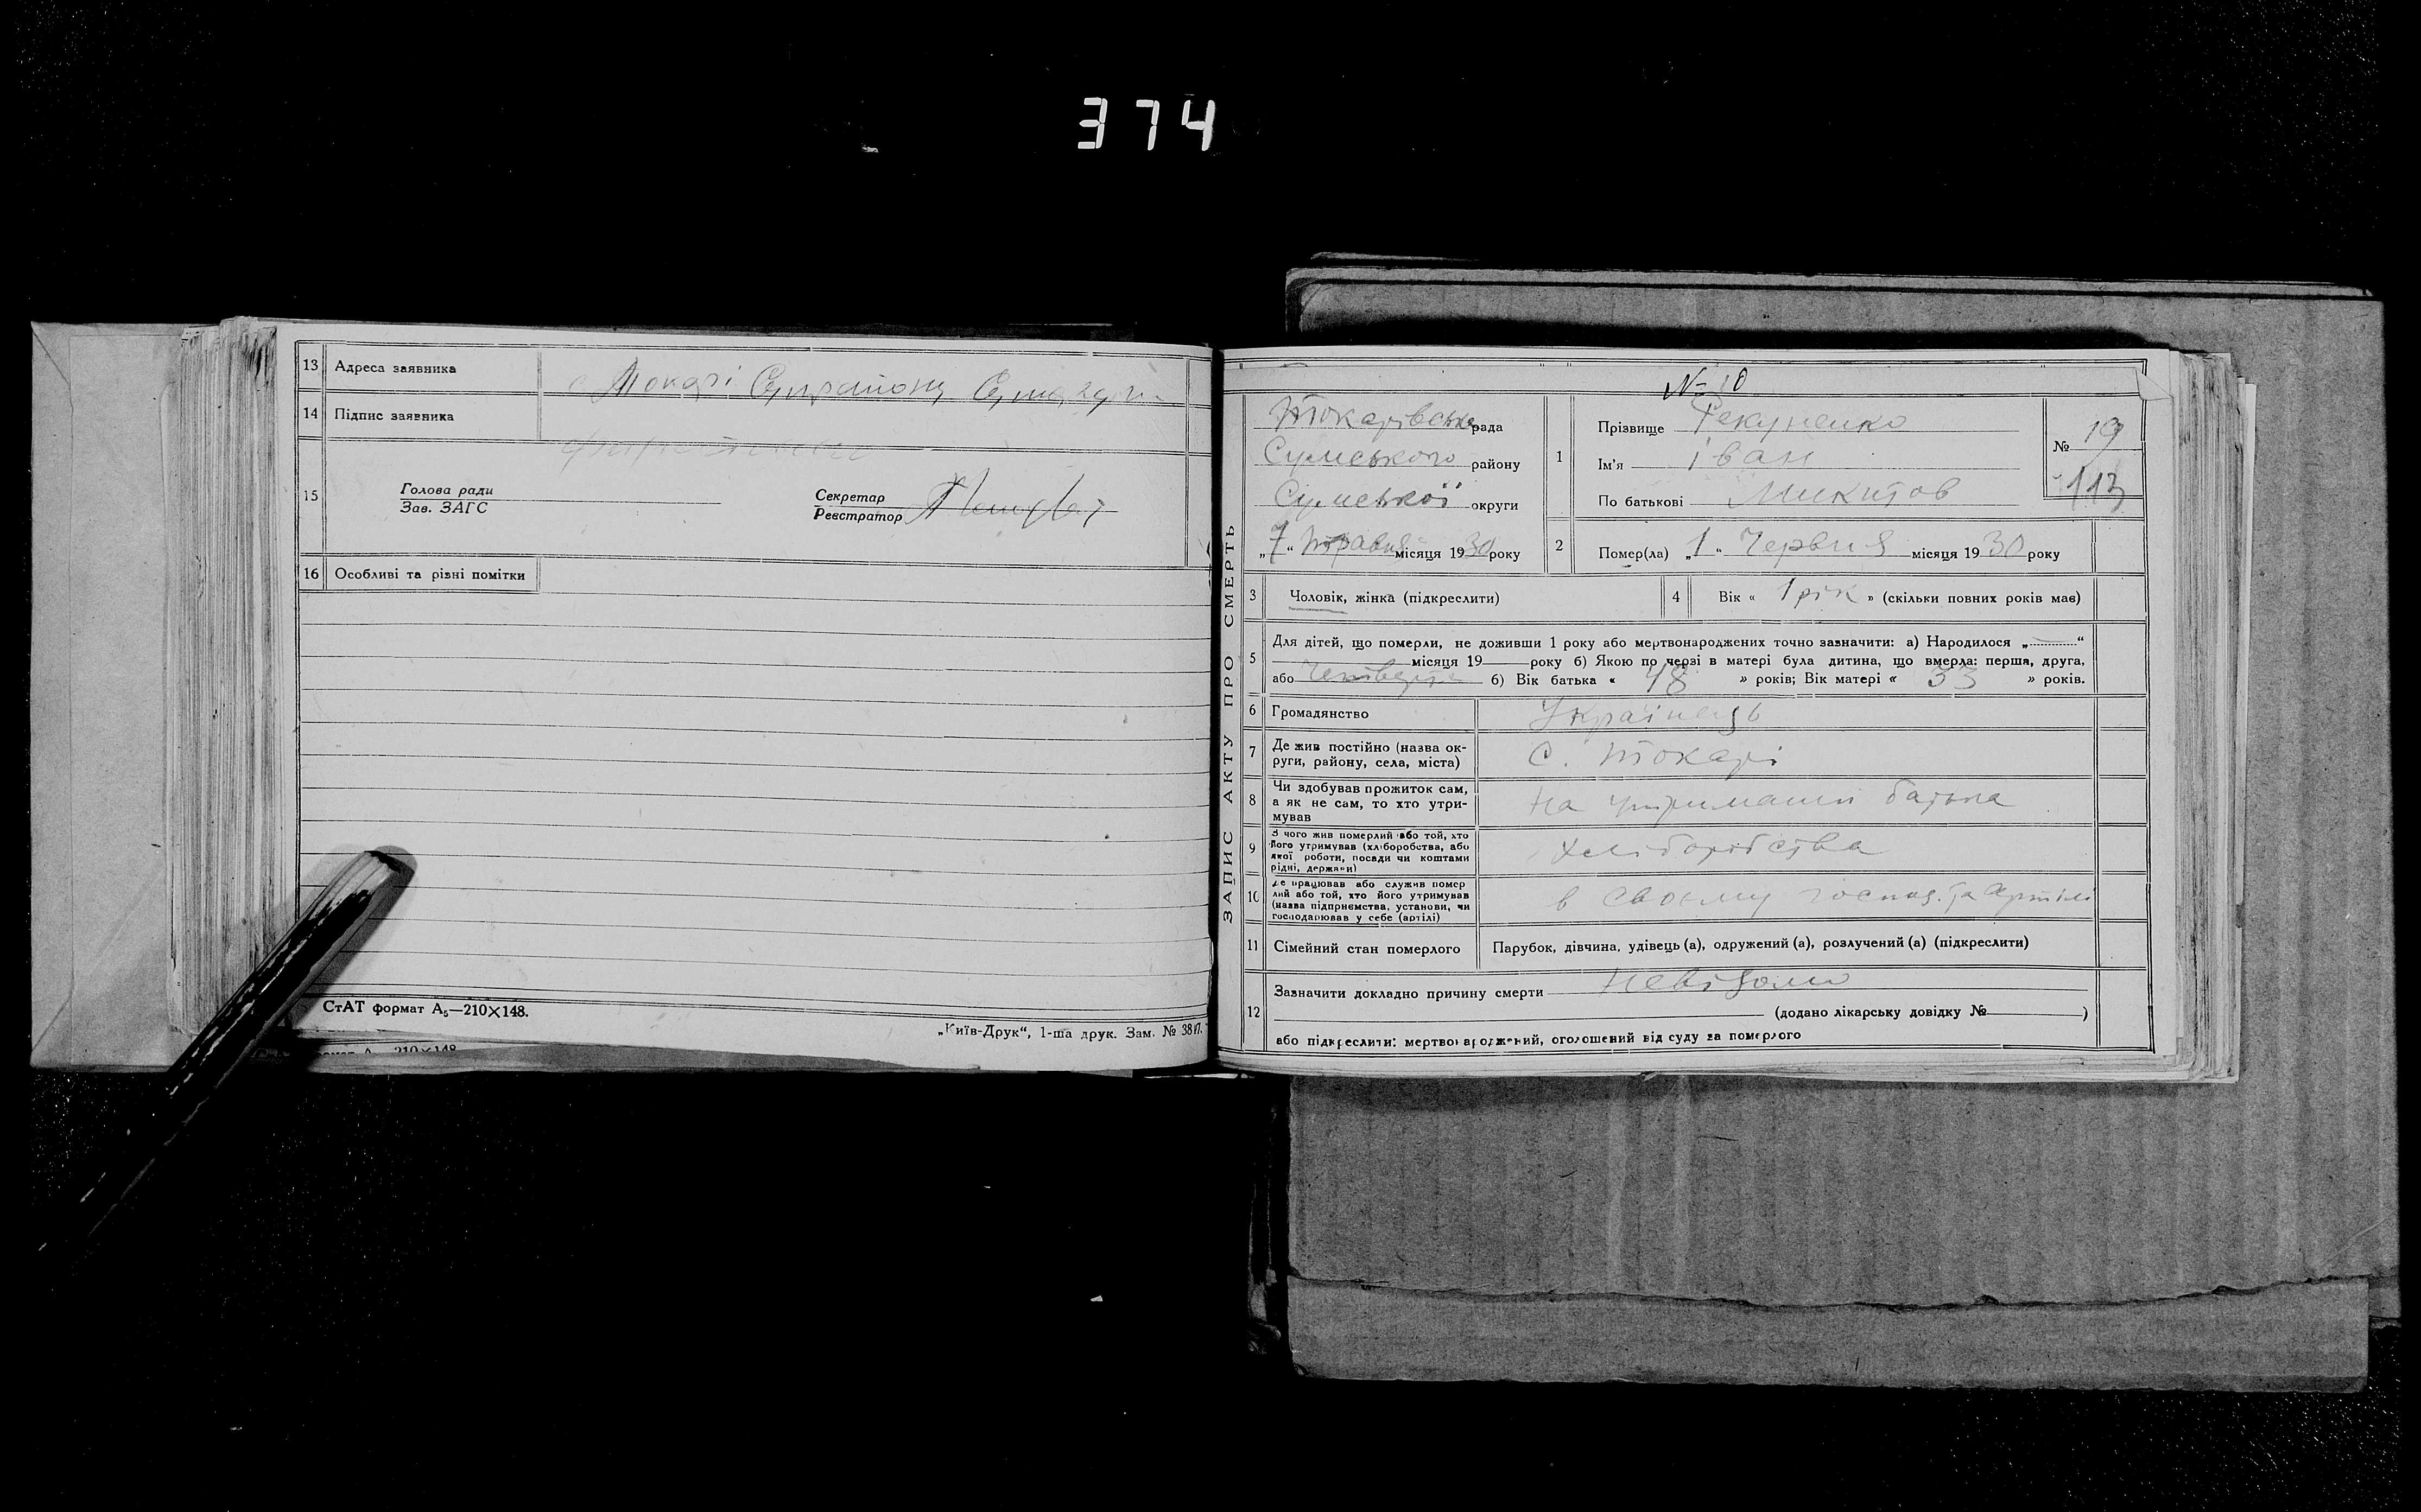 374
13 Адреса заявника с Токарі Сумрайону Сум. окр.
14 Підпис заявника
15 Голова ради
Зав. ЗАГС
Секретар
Реєстратор
16 Особливі та різні помітки
СтАТ формат А₅—210×148.
„Київ-Друк“, 1-ша друк. Зам. № 3817.
210×148
ЗАПИС АКТУ ПРО СМЕРТЬ
№ 10
Токарівська рада
Сумського району
Сумської округи
„7“ травня місяця 1930 року
1 Прізвище Рекуненко
Ім'я Іван
По батькові Микитов
№ 19
113
2 Помер(ла) „1“ Червня місяця 1930 року
3 Чоловік, жінка (підкреслити)
4 Вік « 1 рік » (скільки повних років мав)
5 Для дітей, що померли, не доживши 1 року або мертвонароджених точно зазначити: а) Народилося „ “
місяця 19 року б) Якою по черзі в матері була дитина, що вмерла: перша, друга,
або Четверта б) Вік батька « 48 » років; Вік матері « 33 » років.
6 Громадянство Українець
7 Де жив постійно (назва округи, району, села, міста) С. Токарі
8 Чи здобував прожиток сам, а як не сам, то хто утримував На утриманні батька
9 З чого жив померлий або той, хто його утримував (хліборобства, або якої роботи, посади чи коштами рідні, держави) Хліборобства
10 Де працював або служив померлий або той, хто його утримував (назва підприємства, установи, чи господарював у себе (артілі) в своєму господ. та артілі
11 Сімейний стан померлого Парубок, дівчина, удівець (а), одружений (а), розлучений (а) (підкреслити)
12 Зазначити докладно причину смерти Невідомо
(додано лікарську довідку № )
або підкреслити: мертвонароджений, оголошений від суду за померлого